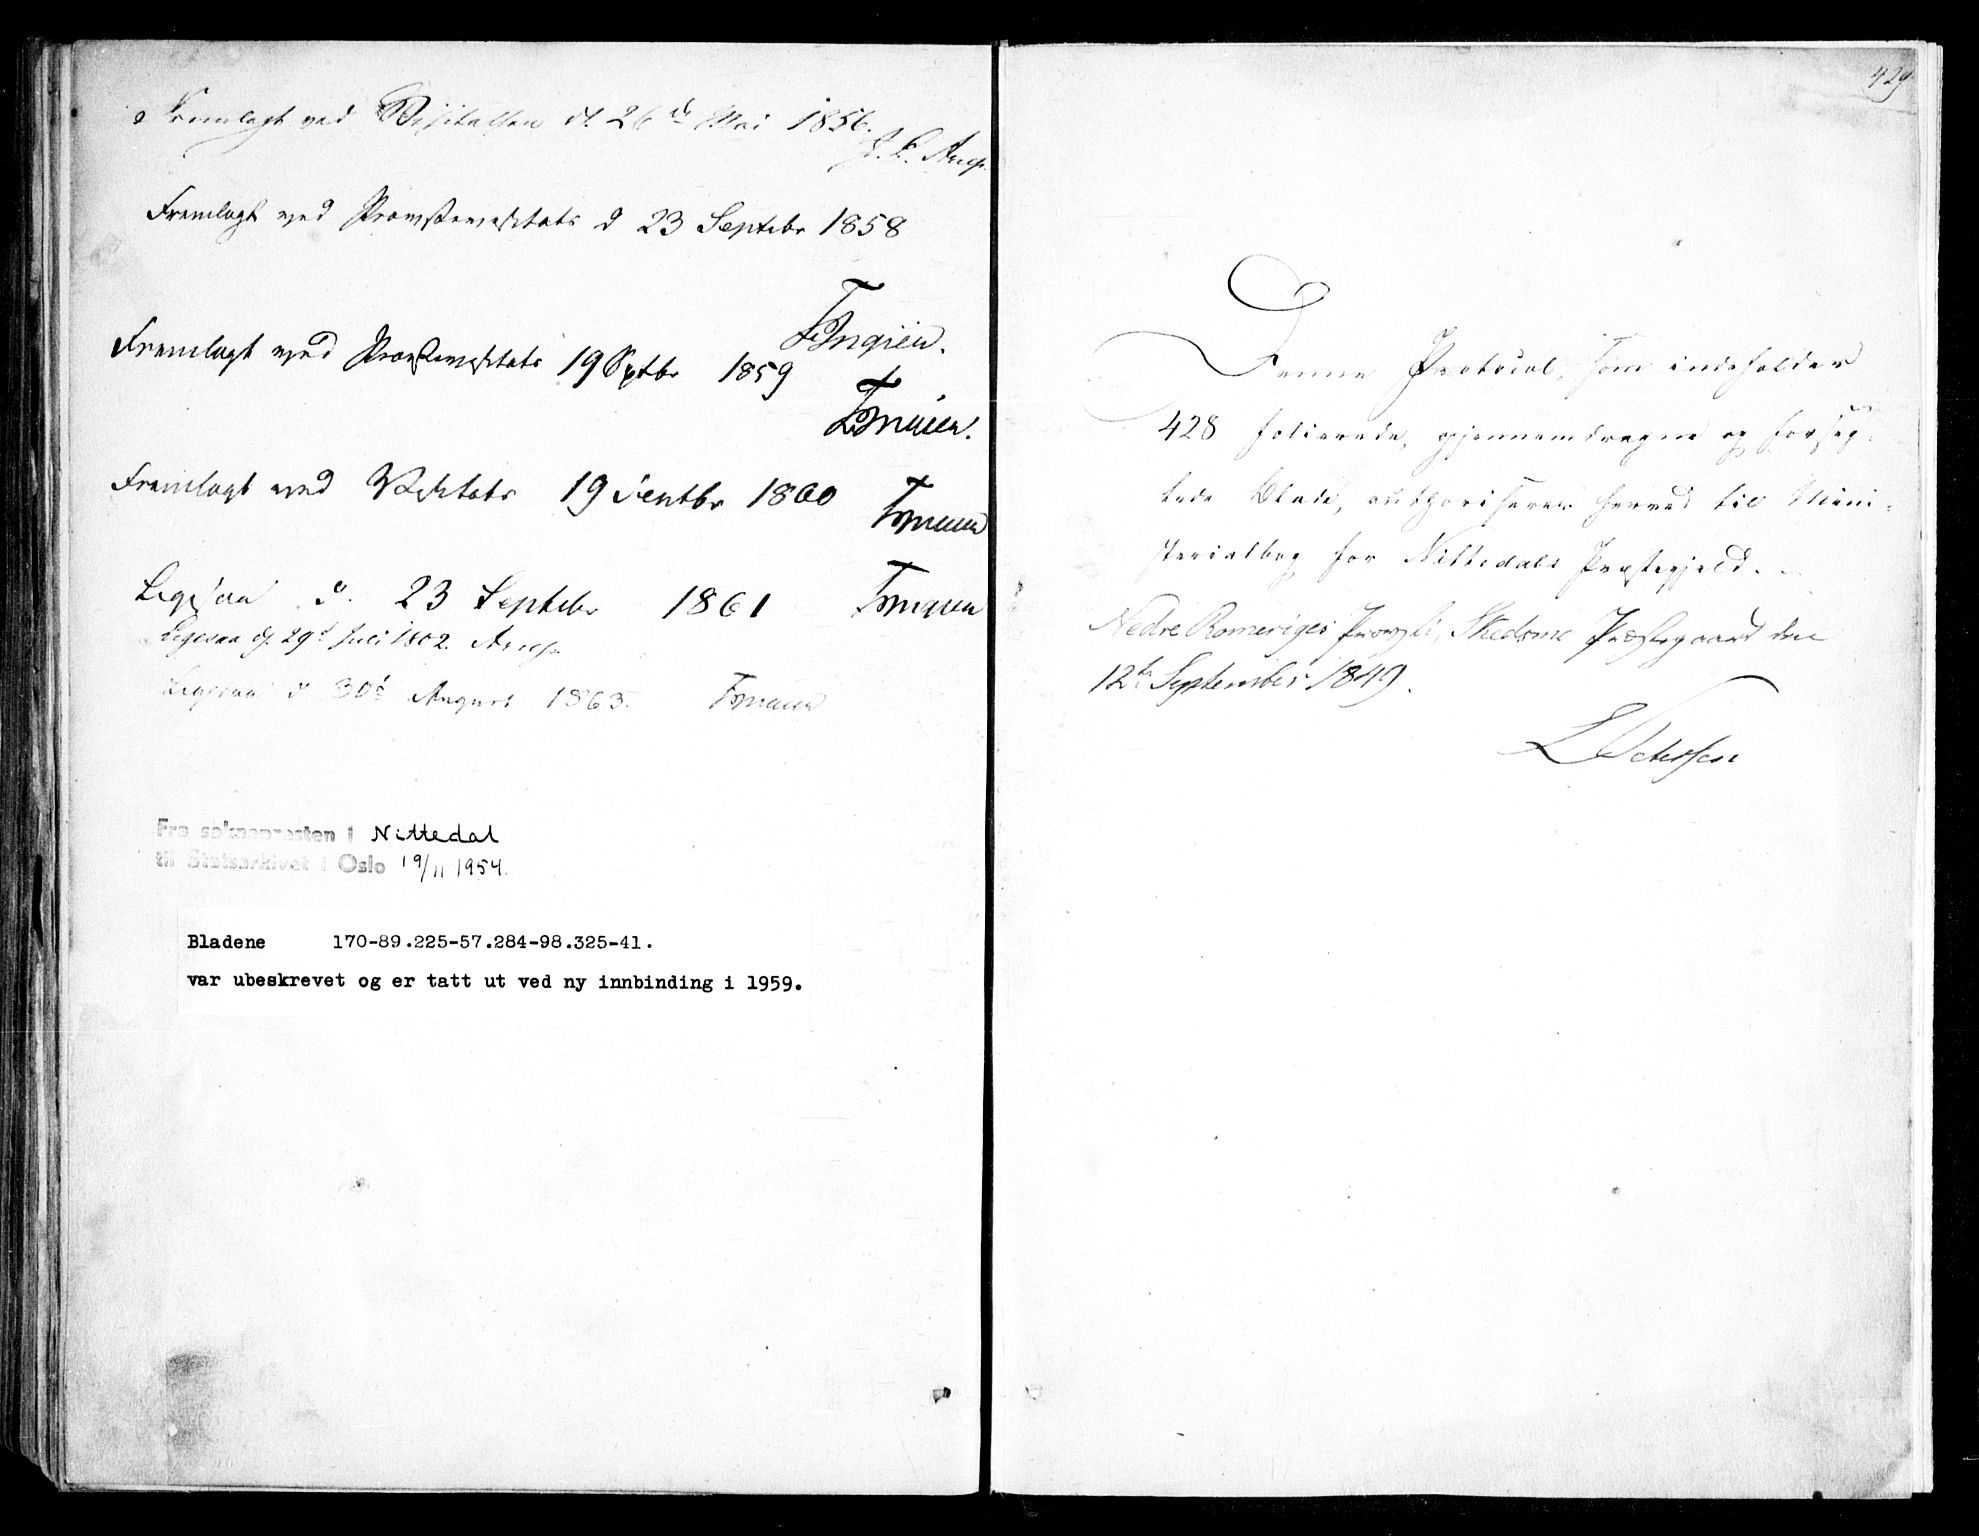 Fremlagt ved Visitatsen d. 26de Mai 1856.
Arup.
Fremlagt ved Provstevisitats d 23 Septebr 1858
Fremlagt ved Provstevisitats 19 Sptbr 1859
Fremlagt ved Visitats 19 Septbr 1860
Ligesaa d. 23 Septebr 1861
Ligesaa d. 29d Juli 1862. Arup.
Ligesaa d 30d August 1863.
Fra soknepresten i Nittedal
til Statsarkivet i Oslo 19/11 1954.
Bladene 170-89.225-57.284-98.325-41.
var ubeskrevet og er tatt ut ved ny innbinding i 1959.
429
Denne Protocol, som indeholder
428 folierede, gjennemdragne og forseg-
lede Blade, authoriseres herved til Mini-
sterialbog for Nittedals Præstegjeld.
Nedre Romeriges Provsti, Skedsmo Præstegaard den
12te September 1849.